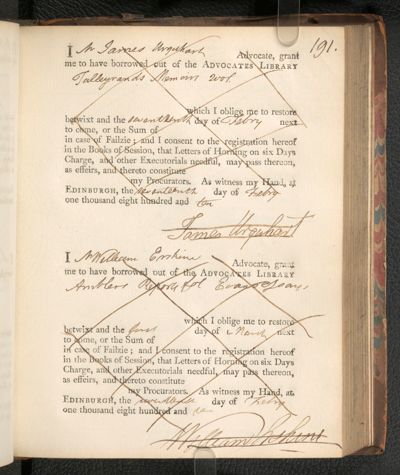 191.
I Mr James Urquhart Advocate, grant
me to have borrowed out of the ADVOCATES LIBRARY
Talleyrands Memoirs vol.
which I oblige me to restore
betwixt and the seventeenth day of Febry next
to come, or the Sum of
in case of Failzie; and I consent to the registration hereof
in the Books of Session, that Letters of Horning on six Days
Charge, and other Executorials needful, may pass thereon,
as effeirs, and thereto constitute
my Procurators. As witness my Hand, at
EDINBURGH, the seventeenth day of Febry
one thousand eight hundred and ten
James Urquhart
I Mr William Erskine Advocate, grant
me to have borrowed out of the ADVOCATES LIBRARY
Amblers Reports fol Evans Essays
which I oblige me to restore
betwixt and the first day of March next
to come, or the Sum of
in case of Failzie; and I consent to the registration hereof
in the Books of Session, that Letters of Horning on six Days
Charge, and other Executorials needful, may pass thereon,
as effeirs, and thereto constitute
my Procurators. As witness my Hand, at
EDINBURGH, the day of Febry
one thousand eight hundred and ten
William Erskine